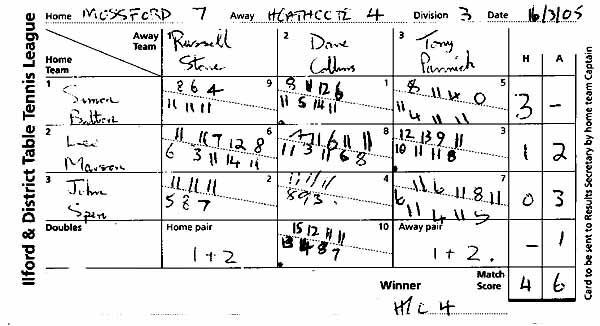 Ilford & District Table Tennis League
Home MOSSFORD 7 Away HEATHCOTE 4 Division 3 Date 16/3/05
Away Team 1 Russell Stone 2 Dave Collins 3 Tony H A
Home Team
1 Simon 9 8 6 4 11 11 11 1 8 11 12 6 11 5 14 11 5 8 11 4 0 11 4 11 11 3 -
2 Lee 6 11 11 7 12 8 6 3 11 14 11 8 11 6 11 11 11 3 11 6 8 3 12 13 9 11 10 11 11 8 1 2
3 John 2 11 11 11 5 8 7 4 11 11 11 8 9 3 7 6 11 6 11 8 11 11 4 11 5 0 3
Doubles Home pair 1+2 10 15 12 11 11 13 4 8 7 Away pair 1+2. - 1
Winner H/C 4 Match Score 4 6
Card to be sent to Results Secretary by home team Captain